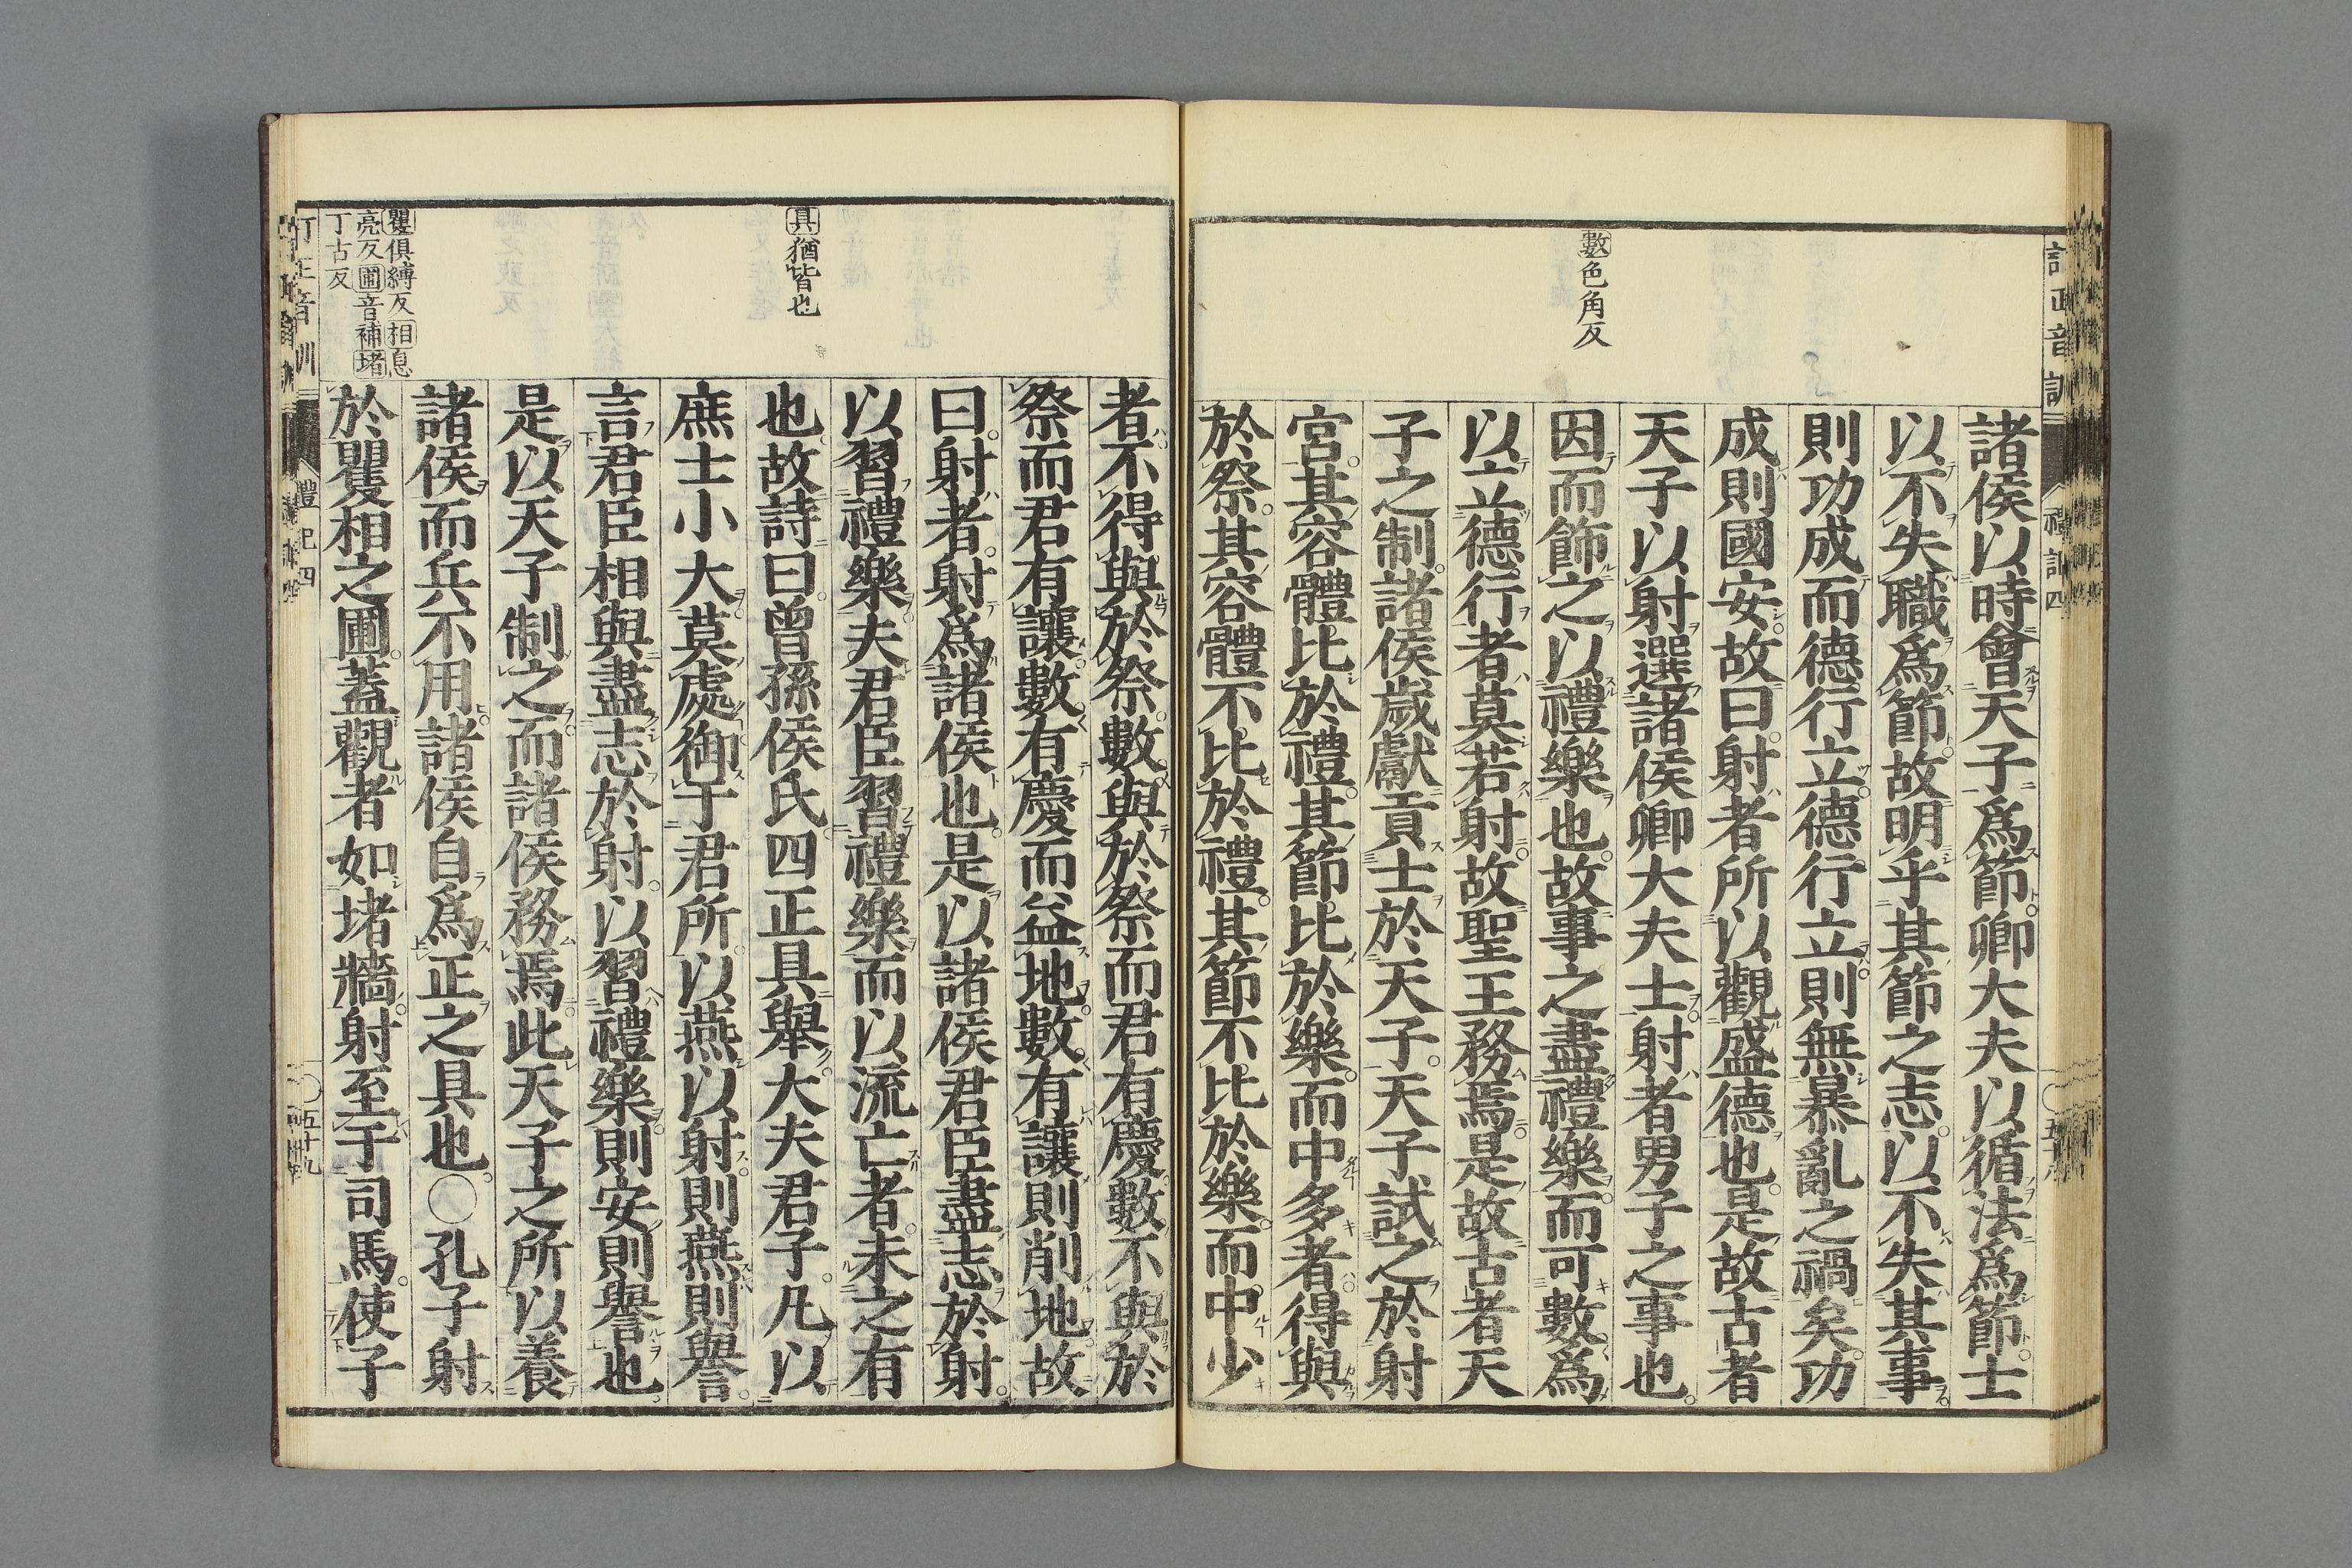 數色角反
諸侯以時會天子爲節卿大夫以循法爲節士
以不失職爲節故明乎其節之志以不失其事
則功成而德行立德行立則無暴亂之禍矣功
成則國安故曰射者所以觀盛德也是故古者
天子以射選諸侯卿大夫士射者男子之事也
因而飾之以禮樂也故事之盡禮樂而可數爲
以立德行者莫若射故聖王務焉是故古者天
子之制諸侯歲獻貢士於天子天子試之於射
宮其容體比於禮其節比於樂而中多者得與
於祭其容體不比於禮其節不比於樂而中少
具猶皆也
矍俱縛反相息
亮反圃音補堵
丁古反
者不得與於祭數與於祭而君有慶數不與於
祭而君有讓數有慶而益地數有讓則削地故
曰射者射爲諸侯也是以諸侯君臣盡志於射
以習禮樂夫君臣習禮樂而以流亡者未之有
也故詩曰曾孫侯氏四正具舉大夫君子凡以
庶士小大莫處御于君所以燕以射則燕則譽
言君臣相與盡志於射以習禮樂則安則譽也
是以天子制之而諸侯務焉此天子之所以養
諸侯而兵不用諸侯自爲正之具也○孔子射
於矍相之圃蓋觀者如堵牆射至于司馬使子
訂正音訓
禮記四
五十九